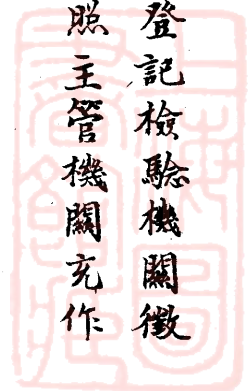 登記檢驗機關徵
照主管機關充作